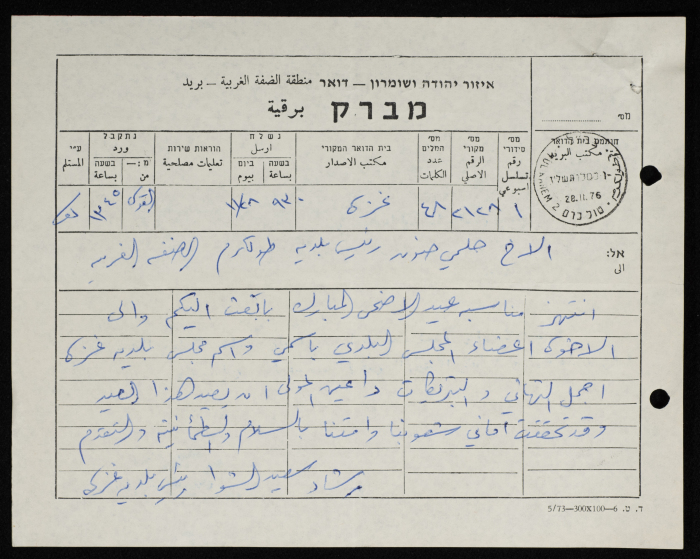 איזור יהודה ושומרון — דואר منطقة الضفة الغربية — بريد
מברק برقية
מס׳
חותמת בית הדואר
مكتب البريد
מס׳ סידורי
رقم تسلسل اسبوعي
מס׳ מקורי
الرقم الاصلي
מס׳ המלים
عدد الكلمات
בית הדואר המקורי
مكتب الاصدار
נשלח
ارسل
בשעה
بساعة
ביום
بيوم
הוראות שירות
تعليمات مصلحية
נתקבל
ورد
מ: —
من
בשעה
بساعة
ע״י
المستلم
١
٢١٢٨
٤٨
غزة
٩٣٠
١١/٢٨
القدس
١٢٤٥
TULKAREM 2 טול כרם
28.11.76
אל:
الى
الاخ حلمي حنون رئيس بلدية طولكرم الضفة الغربية
انتهز مناسبة عيد الاضحى المبارك بابعث اليكم والى
الاخوة اعضاء المجلس البلدي باسمي واسم مجلس بلدية غزة
اجمل التهاني والتبريكات داعين المولى ان يعيد هذا العيد
وقد تحققت اماني شعوبنا وامتنا بالسلام والطمأنينة والتقدم
رشاد سعيد الشوا رئيس بلدية غزة
ד. ט. 5/73—300X100—6